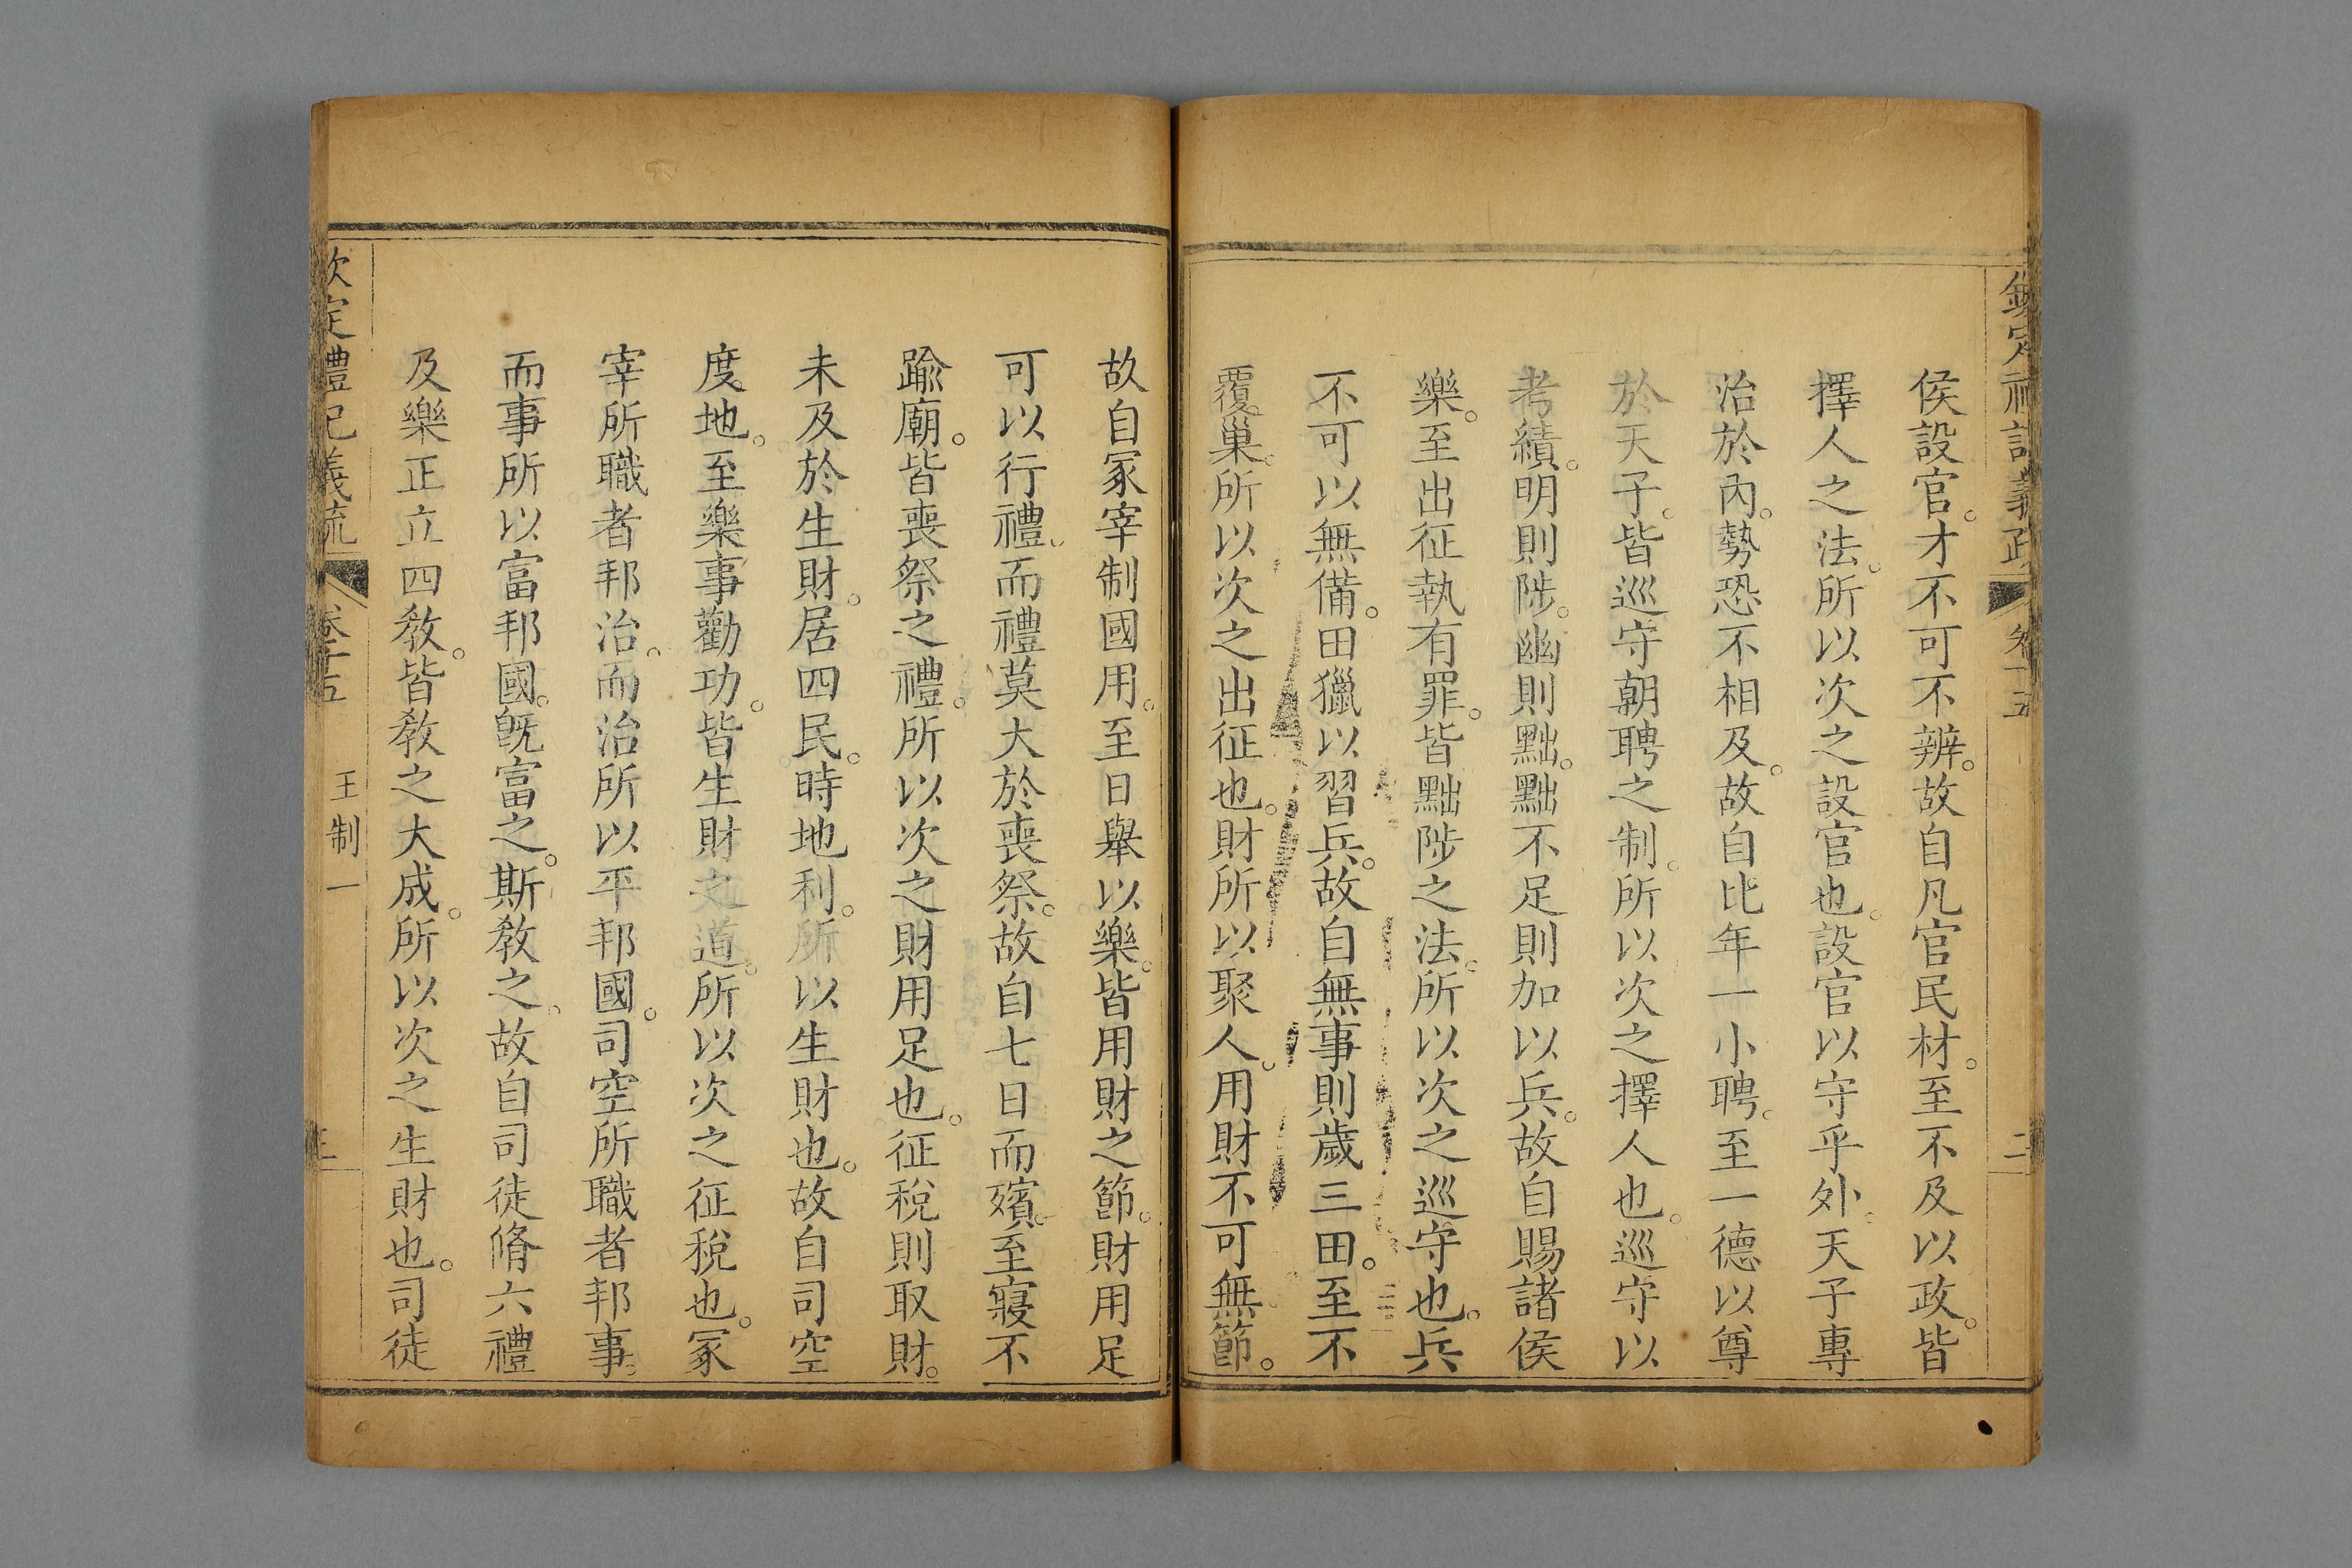 欽定禮記義疏 卷十五 二
侯設官。才不可不辨。故自凡官民材。至不及以政。皆
擇人之法。所以次之設官也。設官以守乎外。天子專
治於內。勢恐不相及。故自比年一小聘。至一德以尊
於天子。皆巡守朝聘之制。所以次之擇人也。巡守以
考績。明則陟。幽則黜。黜不足則加以兵。故自賜諸侯
樂。至出征執有罪。皆黜陟之法。所以次之巡守也。兵
不可以無備。田獵以習兵。故自無事則歲三田。至不
覆巢。所以次之出征也。財所以聚人。用財不可無節。
故自冢宰制國用。至日舉以樂。皆用財之節。財用足
可以行禮。而禮莫大於喪祭。故自七日而殯。至寢不
踰廟。皆喪祭之禮。所以次之財用足也。征稅則取財。
未及於生財。居四民。時地利。所以生財也。故自司空
度地。至樂事勸功。皆生財之道。所以次之征稅也。冢
宰所職者邦治。而治所以平邦國。司空所職者邦事。
而事所以富邦國。旣富之。斯敎之。故自司徒脩六禮
及樂正立四敎。皆敎之大成。所以次之生財也。司徒
欽定禮記義疏 卷十五 王制一 三